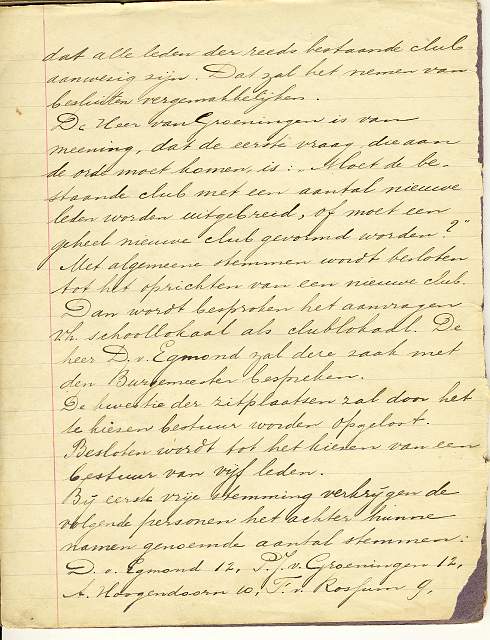 dat alle leden der reeds bestaande club
aanwezig zijn. Dat zal het nemen van
besluiten vergemakkelijken.
De Heer van Groeningen is van
meening, dat de eerste vraag, die aan
de orde moet komen, is: „Moet de be-
staande club met een aantal nieuwe
leden worden uitgebreid, of moet een
geheel nieuwe club gevormd worden?"
Met algemeene stemmen wordt besloten
tot het oprichten van een nieuwe club.
Dan wordt besproken het aanvragen
v/h. schoollokaal als clublokaal. De
heer D. v. Egmond zal deze zaak met
den Burgemeester bespreken.
De kwestie der zitplaatsen zal door het
te kiezen bestuur worden opgelost.
Besloten wordt tot het kiezen van een
bestuur van vijf leden.
Bij eerste vrije stemming verkrijgen de
volgende personen het achter hunne
namen genoemde aantal stemmen:
D. v. Egmond 12, P. J. v. Groeningen 12,
A. Hoogendoorn 10, T. v. Rossum 9,